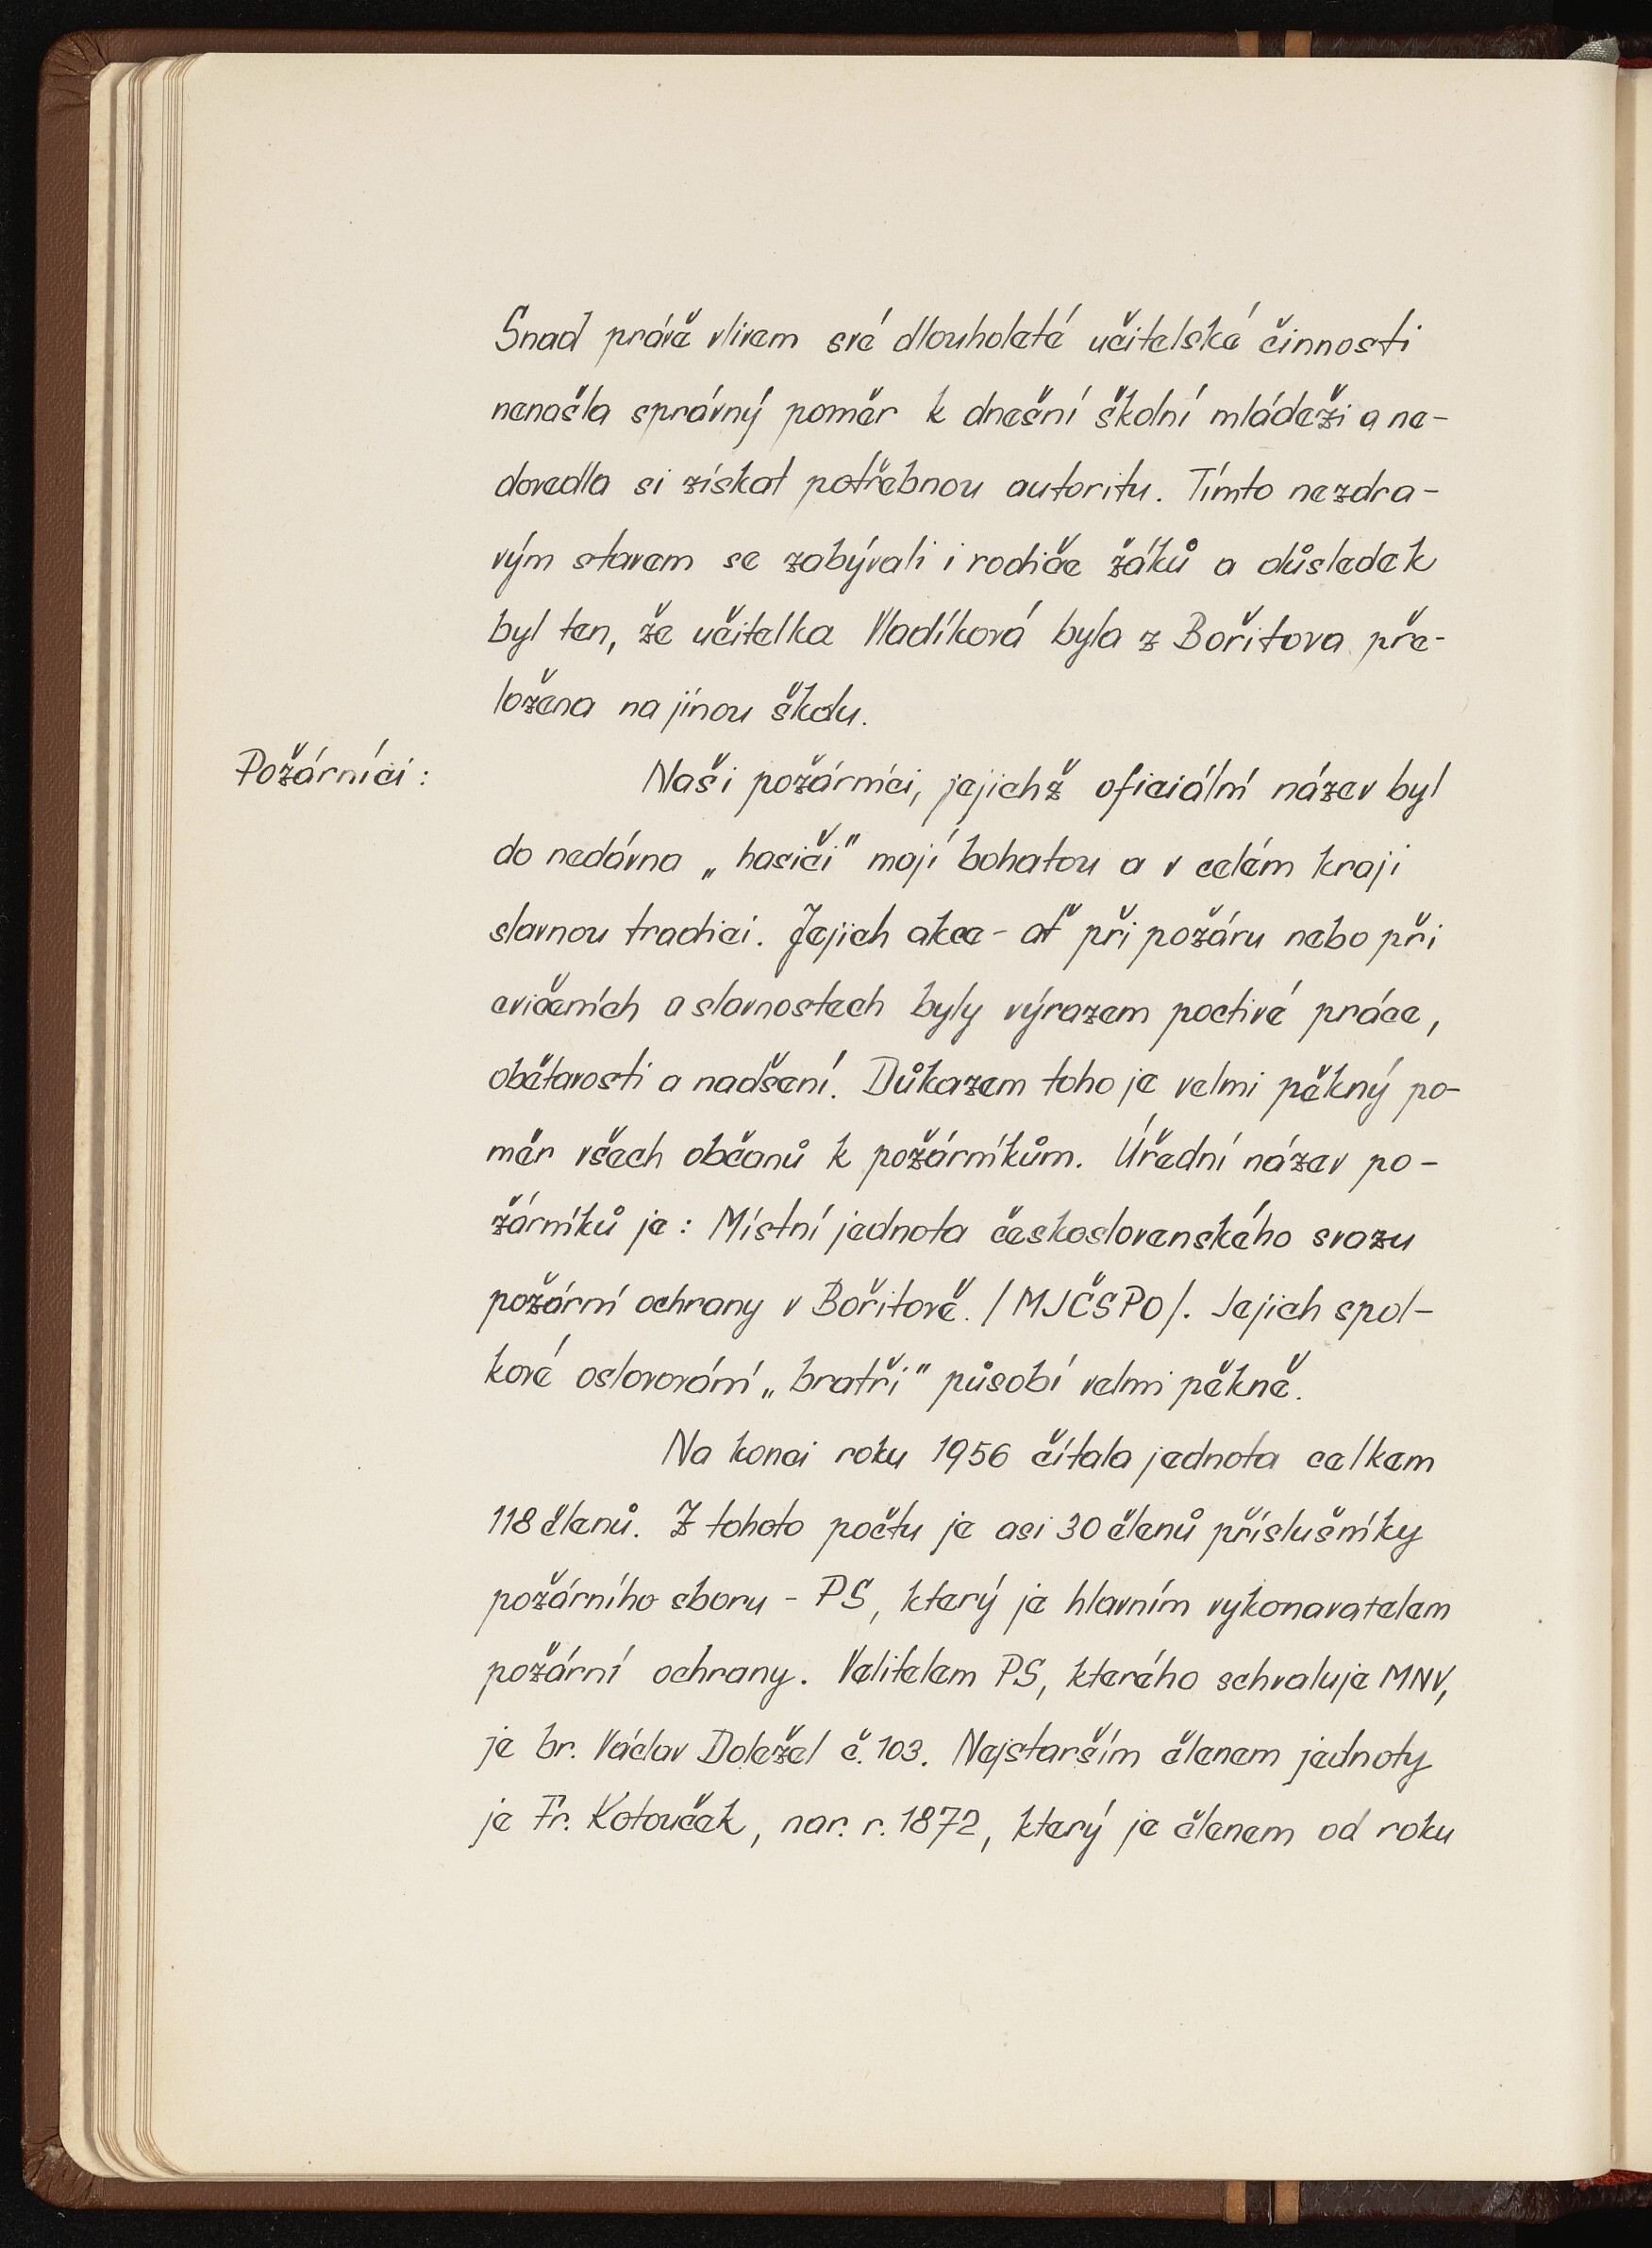 Snad právě vlivem své dlouholeté učitelské činnosti
nenašla správný poměr k dnešní školní mládeži a ne-
dovedla si získat potřebnou autoritu. Tímto nezdra-
vým stavem se zabývali i rodiče žáků a důsledek
byl ten, že učitelka Vladíková byla z Bořitova pře-
ložena na jinou školu.
Požárníci :
Naši požárníci, jejichž oficiální název byl
do nedávna „hasiči" mají bohatou a v celém kraji
slavnou tradici. Jejich akce - ať při požáru nebo při
cvičeních a slavnostech byly výrazem poctivé práce,
obětavosti a nadšení. Důkazem toho je velmi pěkný po-
měr všech občanů k požárníkům. Úřední název po-
žárníků je : Místní jednota československého svazu
požární ochrany v Bořitově. /MJČSPO/. Jejich spol-
kové oslovování „bratři" působí velmi pěkně.
Na konci roku 1956 čítala jednota celkem
118 členů. Z tohoto počtu je asi 30 členů příslušníky
požárního sboru - PS, který je hlavním vykonavatelem
požární ochrany. Velitelem PS, kterého schvaluje MNV,
je br. Václav Doležel č. 103. Nejstarším členem jednoty
je Fr. Kotouček, nar. r. 1872, který je členem od roku